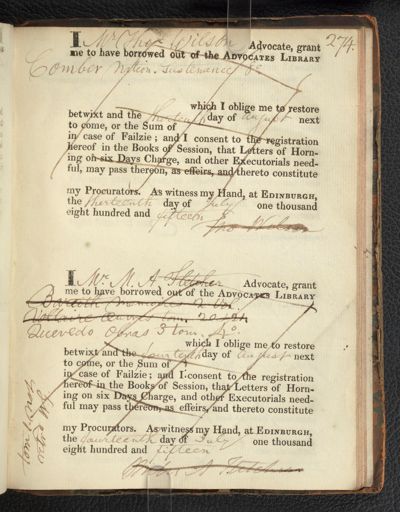 274
I Mr Thos Wilson Advocate, grant
me to have borrowed out of the ADVOCATES LIBRARY
Comber Nation. Sustenance 8o
which I oblige me to restore
betwixt and the thirteenth day of August next
to come, or the Sum of
in case of Failzie; and I consent to the registration
hereof in the Books of Session, that Letters of Horn-
ing on six Days Charge, and other Executorials need-
ful, may pass thereon, as effeirs, and thereto constitute
my Procurators. As witness my Hand, at EDINBURGH,
the thirteenth day of July one thousand
eight hundred and fifteen
Tho Wilson
I Mr M. A. Fletcher Advocate, grant
me to have borrowed out of the ADVOCATES LIBRARY
Voltaire Œuvres tom. 20 & 21
Quevedo Obras 3 tom. 4o.
which I oblige me to restore
betwixt and the fourteenth day of August next
to come, or the Sum of
in case of Failzie; and I consent to the registration
hereof in the Books of Session, that Letters of Horn-
ing on six Days Charge, and other Executorials need-
ful may pass thereon, as effeirs, and thereto constitute
my Procurators. As witness my Hand, at EDINBURGH,
the fourteenth day of July one thousand
eight hundred and fifteen
A Fletcher